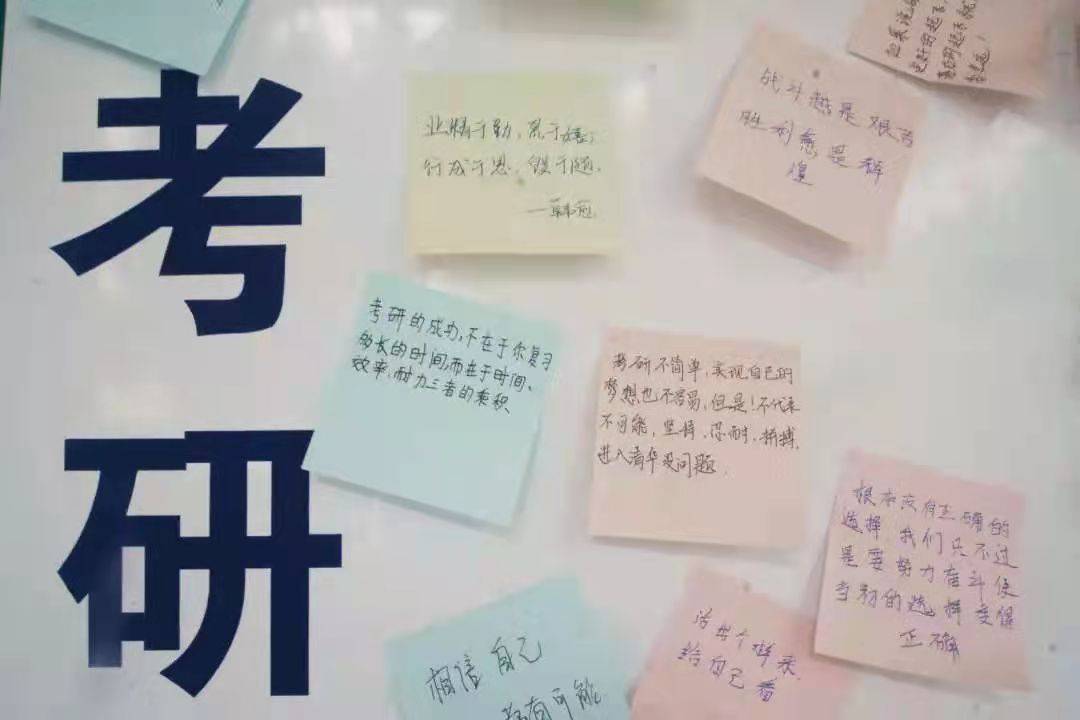 考
研
业精于勤,荒于嬉;
行成于思,毁于随.
——韩愈.
战斗越是艰苦
胜利愈是辉
煌
考研的成功,不在于你复习
的长的时间,而在于时间、
效率、耐力三者的乘积.
考研不简单,实现自己的
梦想也不容易,但是!不代表
不可能,坚持,忍耐,拼搏,
进入清华没问题.
根本没有正确的
选择 我们只不过
是要努力奋斗使
当初的选择变得
正确
活出个样来
给自己看
相信自己
有可能